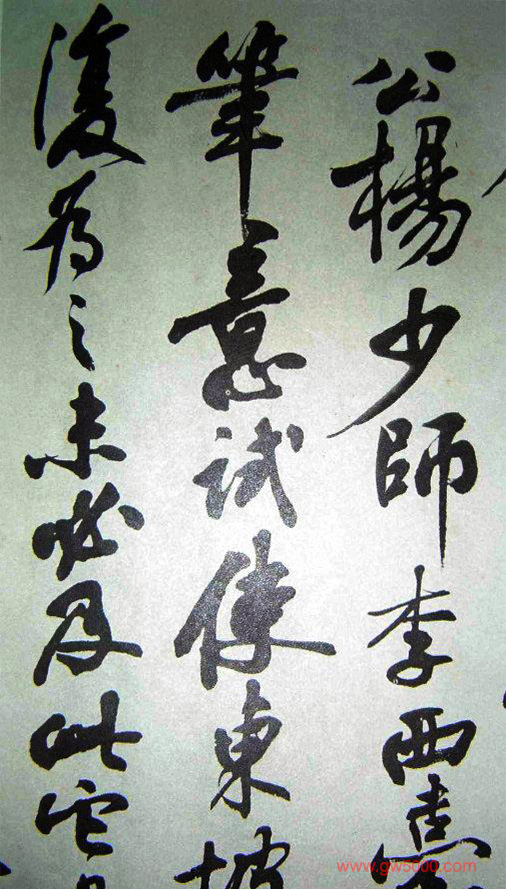 公楊少師李西臺
筆意試使東坡
復為之未必及此它
www.gw5000.com